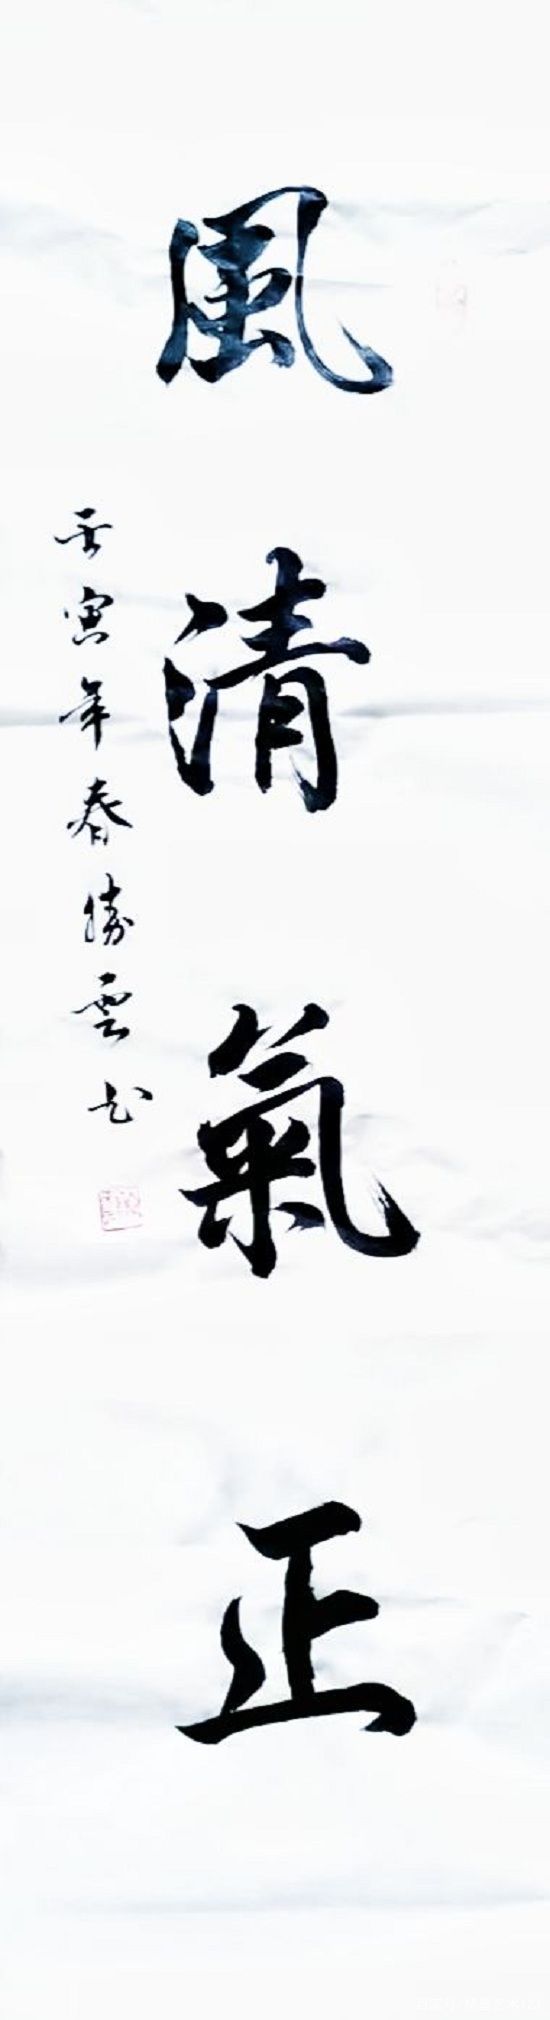 風清氣正
壬寅年春勝雲书